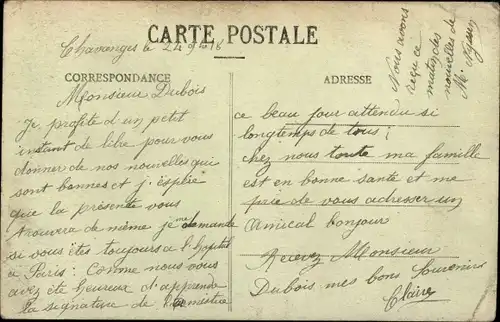 CARTE POSTALE
Chavanges le 24 9bre 18
CORRESPONDANCE
ADRESSE
Monsieur Dubois
Je profite d un petit
instant de libre pour vous
donner de nos nouvelles qui
sont bonnes et j'éspère
que la présente vous
trouvera de même je me demande
si vous êtes toujours a l'hopital
a Paris: Comme nous vous
avez été heureux d'apprendre
la signature de l'armistice
ce beau jour attendu si
longtemps de tous;
chez nous toute ma famille
est en bonne santé et me
prie de vous adresser un
amical bonjour
Recevez Monsieur
Dubois mes bons Souvenirs
Claire
Nous avons
reçu ce
matin des
nouvelles de
M.